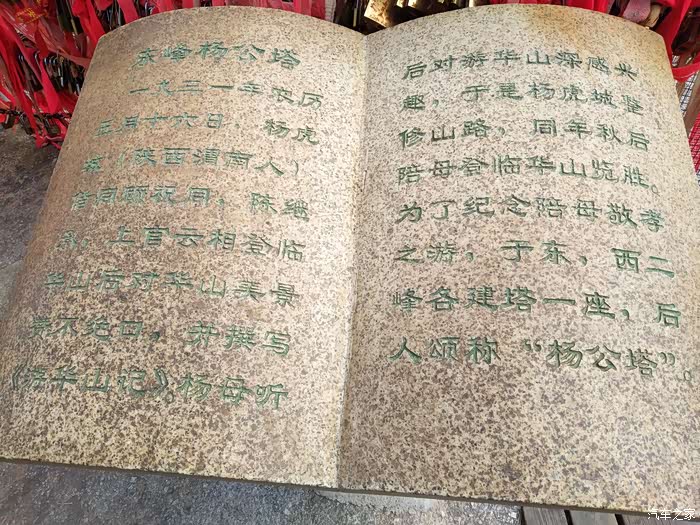 东峰杨公塔
一九三一年农历
五月十六日 杨虎
城（陕西渭南人）
偕同顾祝同，陈继
承，上官云相登临
华山后对华山美景
赞不绝口，并撰写
《游华山记》杨母听
后对游华山深感兴
趣，于是杨虎城整
修山路，同年秋后
陪母登临华山览胜。
为了纪念陪母敬孝
之游，于东，西二
峰各建塔一座，后
人颂称“杨公塔”。
汽车之家